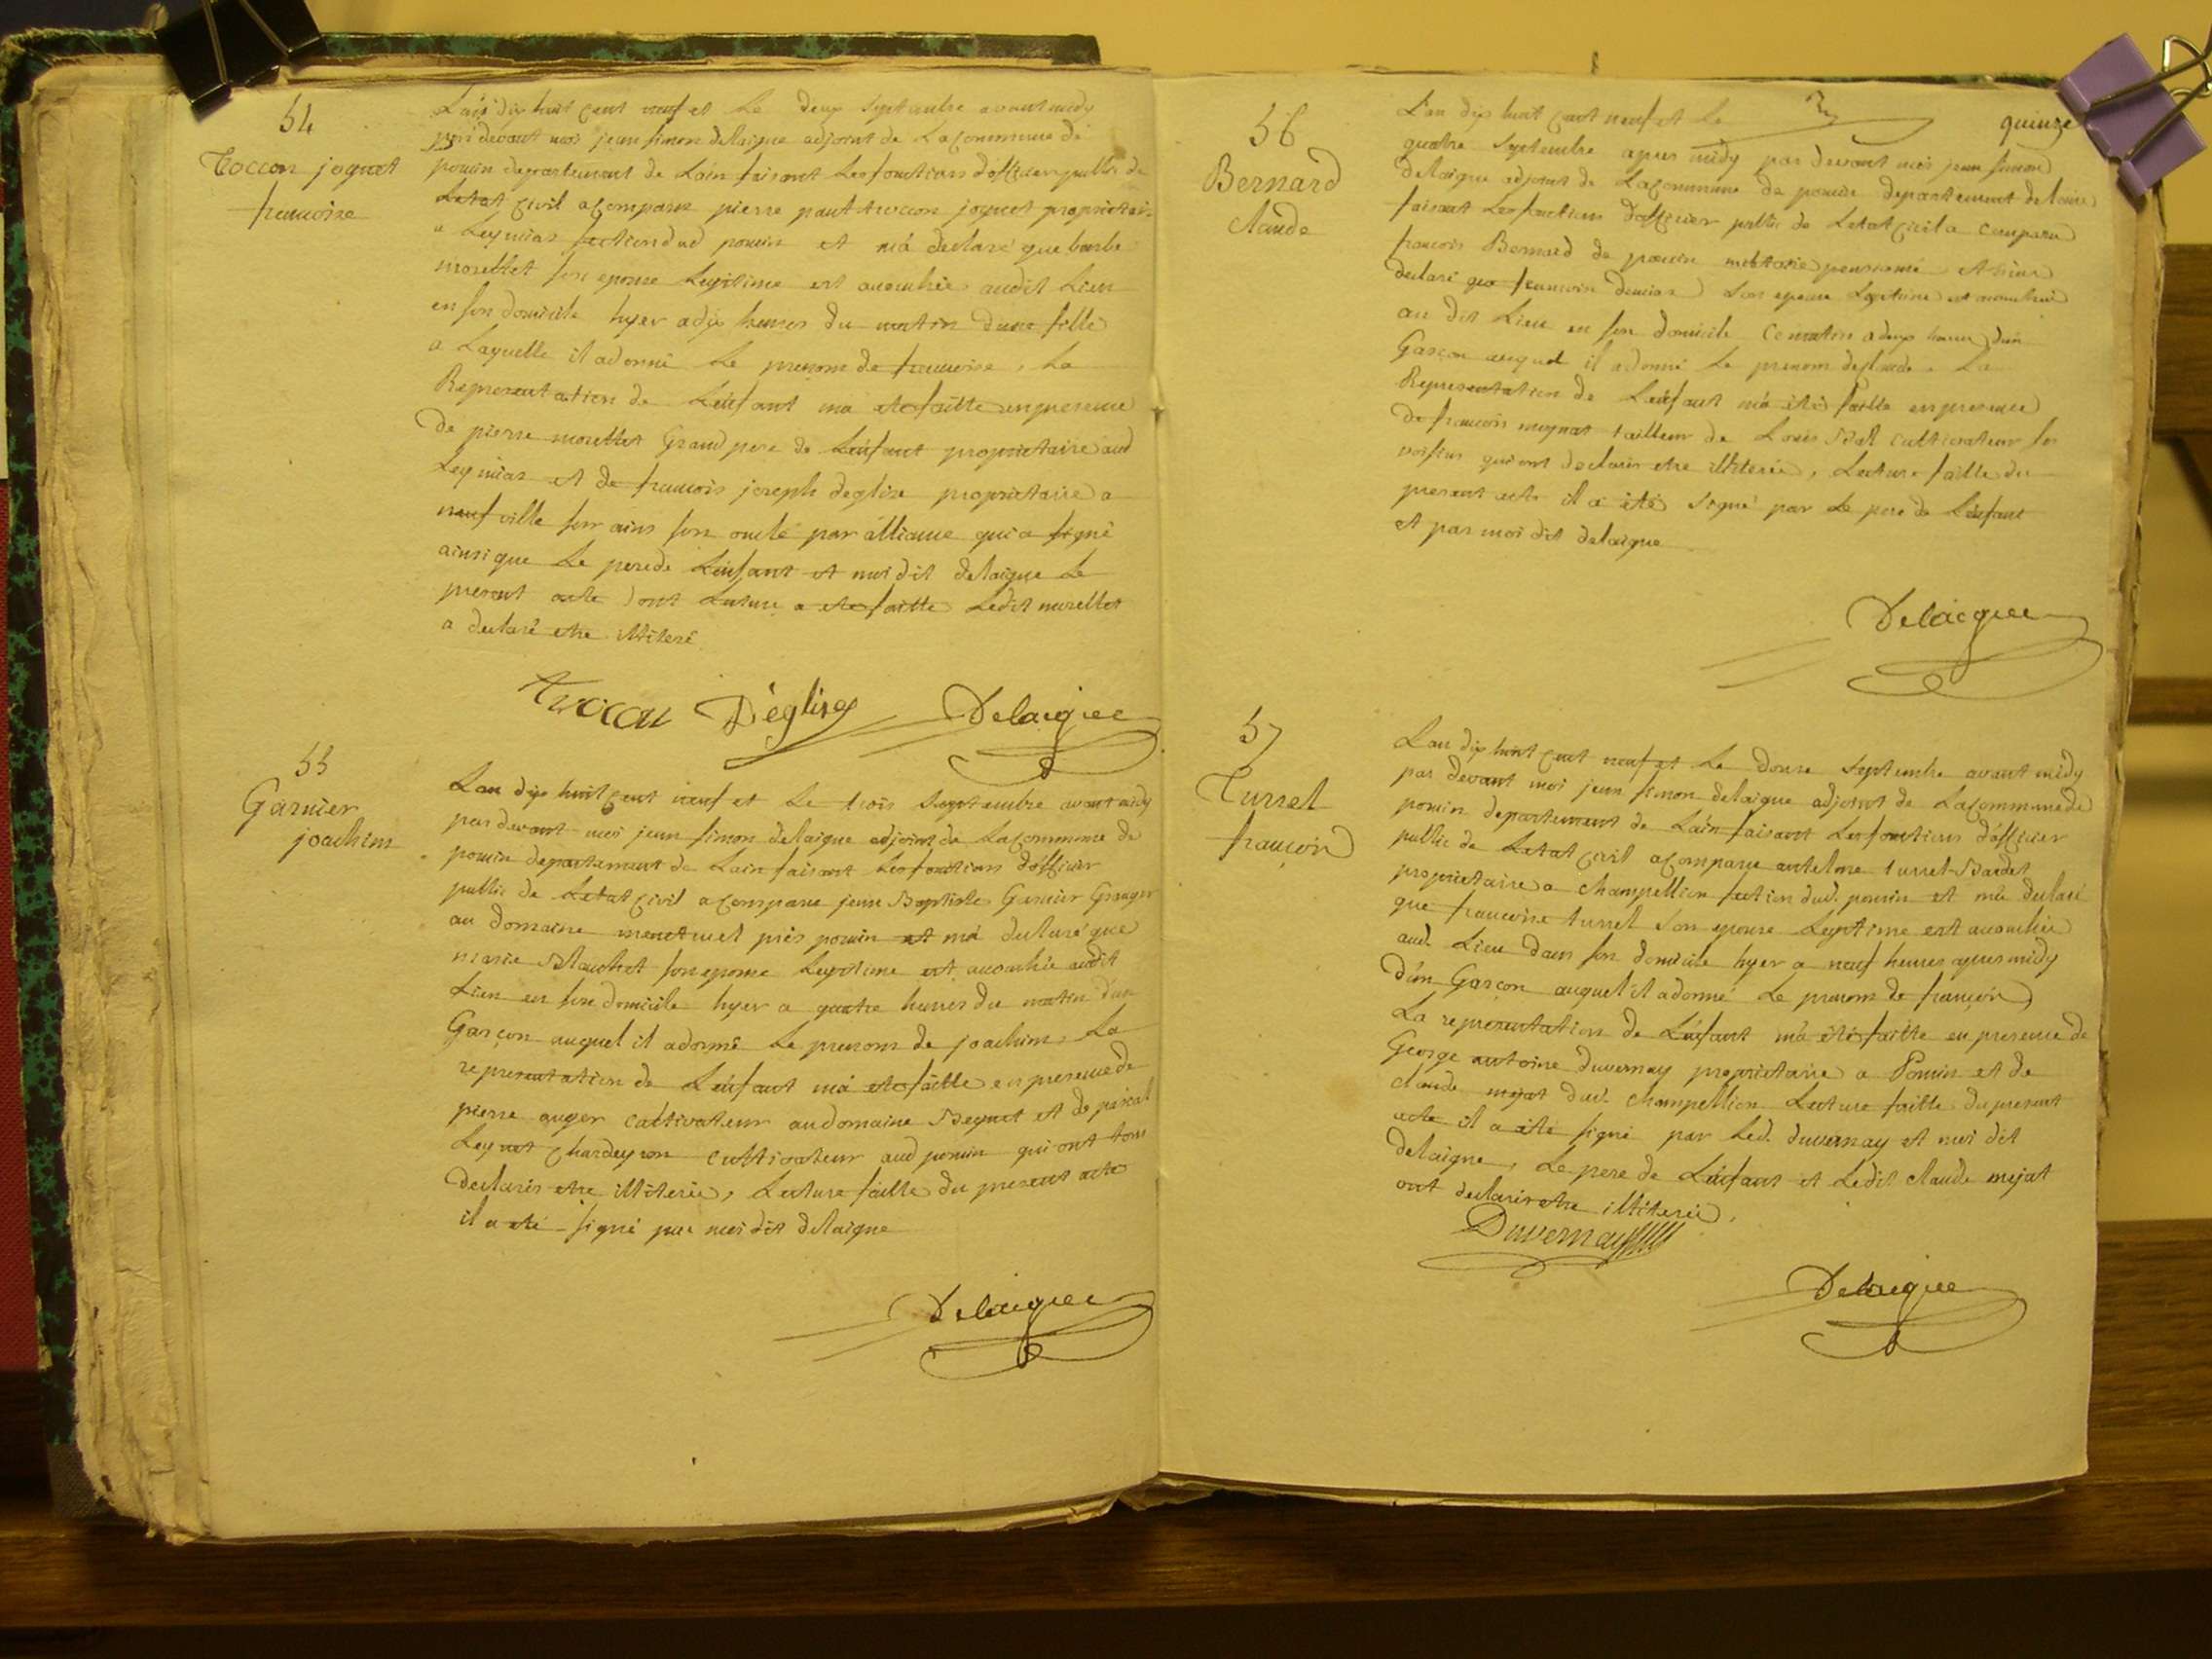 54
Toccon joquet
francoise
L'an dix huit cent neuf et le deux septembre avant midy
par devant moi jean simon delaigue adjoint de la commune de
poncin departement de Lain faisant les fonctions d'officier public de
Letat civil a comparu pierre paul trocon joquet proprietaire
a Leymiar section dud poncin et m'a declaré que barbe
morellet son epouse Legitime est accouchée audit Lieu
en son domicile hyer a dix heures du matin dune fille
a Laquelle il a donné Le prenom de francoise, La
Representation de Lenfant ma ete faitte en presence
De pierre morellet Grand pere de Lenfant proprietaire aud
Leymiar et de francois joseph deglise proprietaire a
neufville sur ains son oncle par alliance qui a signé
ainsi que Le pere de Lenfant et moi dit delaigue Le
present acte dont Lecture a ete faitte Ledit morellet
a declaré etre illiteré
trocon Déglise Delaigue
55
Garnier
joachim
Lan dix huit cent neuf et Le trois Septembre avant midy
par devant moi jean simon delaigue adjoint de La commune de
poncin departement de Lain faisant Les fonctions d'officier
public de Letat civil a comparu jean Baptiste Garnier Granger
au domaine près poncin et m'a declaré que
marie Blanchet son epouse Legitime est accouchée audit
Lieu en son domicile hyer a quatre heures du matin d'un
Garçon auquel il a donné Le prenom de joachim, La
representation de Lenfant m'a ete faitte en presence de
pierre auger cultivateur au domaine et de pascal
chardeyron cultivateur aud poncin qui ont tous
declarés etre illiterés, Lecture faitte du present acte
il a eté signé par moi dit delaigue
Delaigue
quinze
56
Bernard
claude
L'an dix huit cent neuf et Le
quatre Septembre apres midy par devant moi jean simon
delaigue adjoint de La commune de poncin departement de Lain
faisant Les fonctions d'officier public de Letat civil a comparu
francois Bernard de poncin militaire pensionné et m'a
declaré que son epouse Legitime est accouchée
au dit Lieu en son domicile ce matin a deux heures d'un
Garçon auquel il a donné Le prenom de claude. La
Representation de Lenfant m'a eté faitte en presence
de francois tailleur de Louis cultivateur ses
voisins qui ont declarés etre illiterés, Lecture faitte du
present acte il a été signé par Le pere de Lenfant
et par moi dit delaigue
Delaigue
57
Turrel
françois
Lan dix huit cent neuf et Le douze septembre avant midy
par devant moi jean simon delaigue adjoint de La commune de
poncin departement de Lain faisant Les fonctions d'officier
public de Letat civil a comparu antelme turrel-Bardet
proprietaire a champellion section dud. poncin et m'a declaré
que francoise turrel son epouse Legitime est accouchée
aud. Lieu dans son domicile hyer a neuf heures apres midy
d'un Garçon auquel il a donné Le prenom de françois
La representation de Lenfant m'a été faitte en presence de
George antoine duvernay proprietaire a Poncin et de
claude mejat dud. champellion Lecture faitte du present
acte il a été signé par Led. duvernay et moi dit
delaigue, Le pere de Lenfant et Ledit claude mejat
ont declarés etre illiterés,
Duvernay
Delaigue